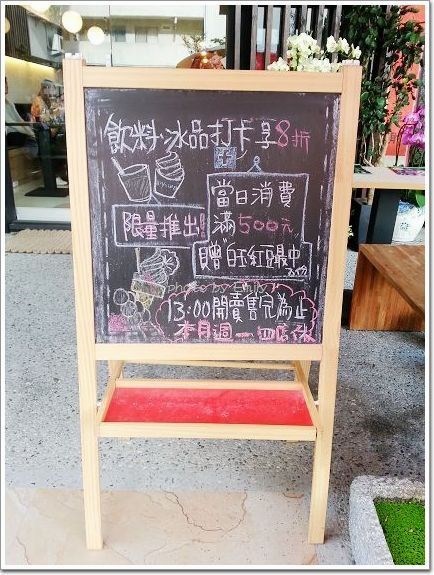 飲料·冰品打卡享8折
當日消費
限量推出!
滿500元
贈"白玉紅豆最中
13:00開賣售完為止
本月週一.四店休
photo by Emily